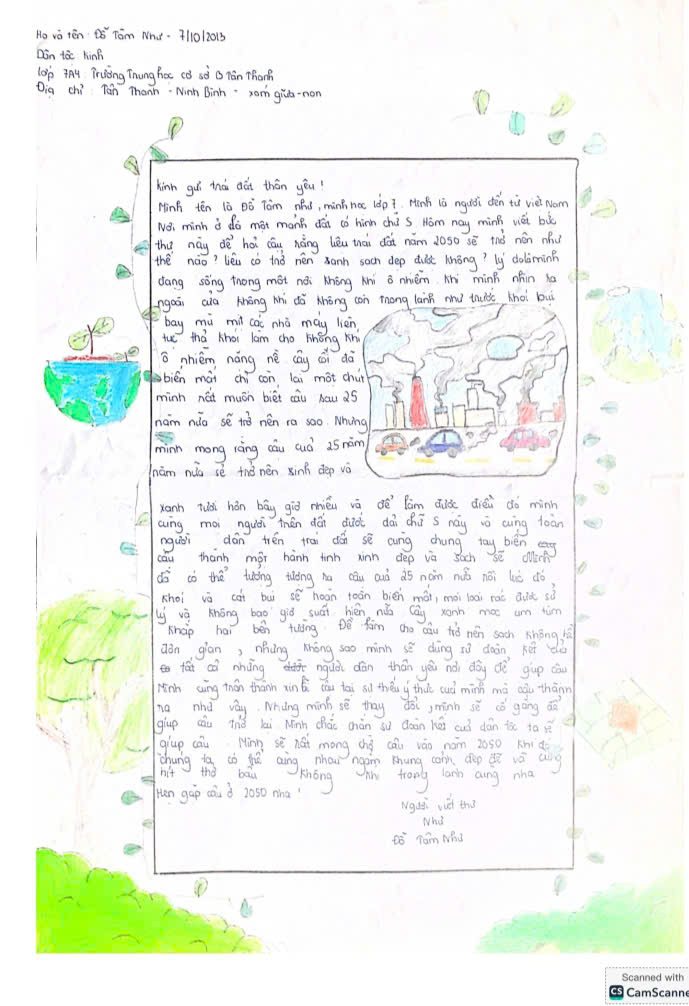 Họ và tên: Đỗ Tâm Như - 7/10/2013
Dân tộc kinh
lớp 7A4 Trường Trung học cơ sở B Tân Thanh
Địa chỉ Tân Thanh - Ninh Bình - xóm giữa-non
Kính gửi trái đất thân yêu!
Mình tên là Đỗ Tâm Như, mình học lớp 7. Mình là người đến từ việt Nam
Nơi mình ở đó một mảnh đất có hình chữ S Hôm nay mình viết bức
thư này để hỏi cậu rằng liệu trái đất năm 2050 sẽ trở nên như
thế nào? liệu có trở nên xanh sạch đẹp được không? lý do là mình
đang sống trong một nơi không khí ô nhiễm. Khi mình nhìn ra
ngoài cửa không khí đã không còn trong lành như trước khói bụi
bay mù mịt các nhà máy liên,
tục thả khói làm cho không khí
ô nhiễm nặng nề cây cối đã
biến mất chỉ còn lại một chút
mình rất muốn biết cậu sau 25
năm nữa sẽ trở nên ra sao. Nhưng
mình mong rằng cậu của 25 năm
năm nữa sẽ trở nên xinh đẹp và
xanh tươi hơn bây giờ nhiều và để làm được điều đó mình
cùng mọi người trên đất được dải chữ S này và cùng toàn
người dân trên trái đất sẽ cùng chung tay biến
cậu thành một hành tinh xinh đẹp và sạch sẽ Mình
đã có thể tưởng tượng ra cậu của 25 năm nữa nói lúc đó,
khói và cát bụi sẽ hoàn toàn biến mất, mọi loài rác được sử
lý và không bao giờ suất hiện nữa Cây xanh mọc um tùm
khắp hai bên tường. Để làm cho cậu trở nên sạch không hề
đơn giản, nhưng không sao mình sẽ dùng sự đoàn kết của
tất cả những người dân thân yêu nơi đây để giúp cậu
Mình cũng trân thành xin lỗi cậu tại sự thiếu ý thức của mình mà cậu thành
ra như vậy. Nhưng mình sẽ thay đổi, mình sẽ cố gắng để
giúp cậu trở lại Mình chắc chắn sự đoàn kết của dân tộc ta sẽ
giúp cậu. Mình sẽ rất mong chờ cậu vào năm 2050 khi đó
chúng ta có thể cùng nhau ngắm khung cảnh đẹp đẽ và cùng
hít thở bầu không khí trong lành cùng nha
Hẹn gặp cậu ở 2050 nha!
Người viết thư
Như
Đỗ Tâm Như
Scanned with
CS CamScanne